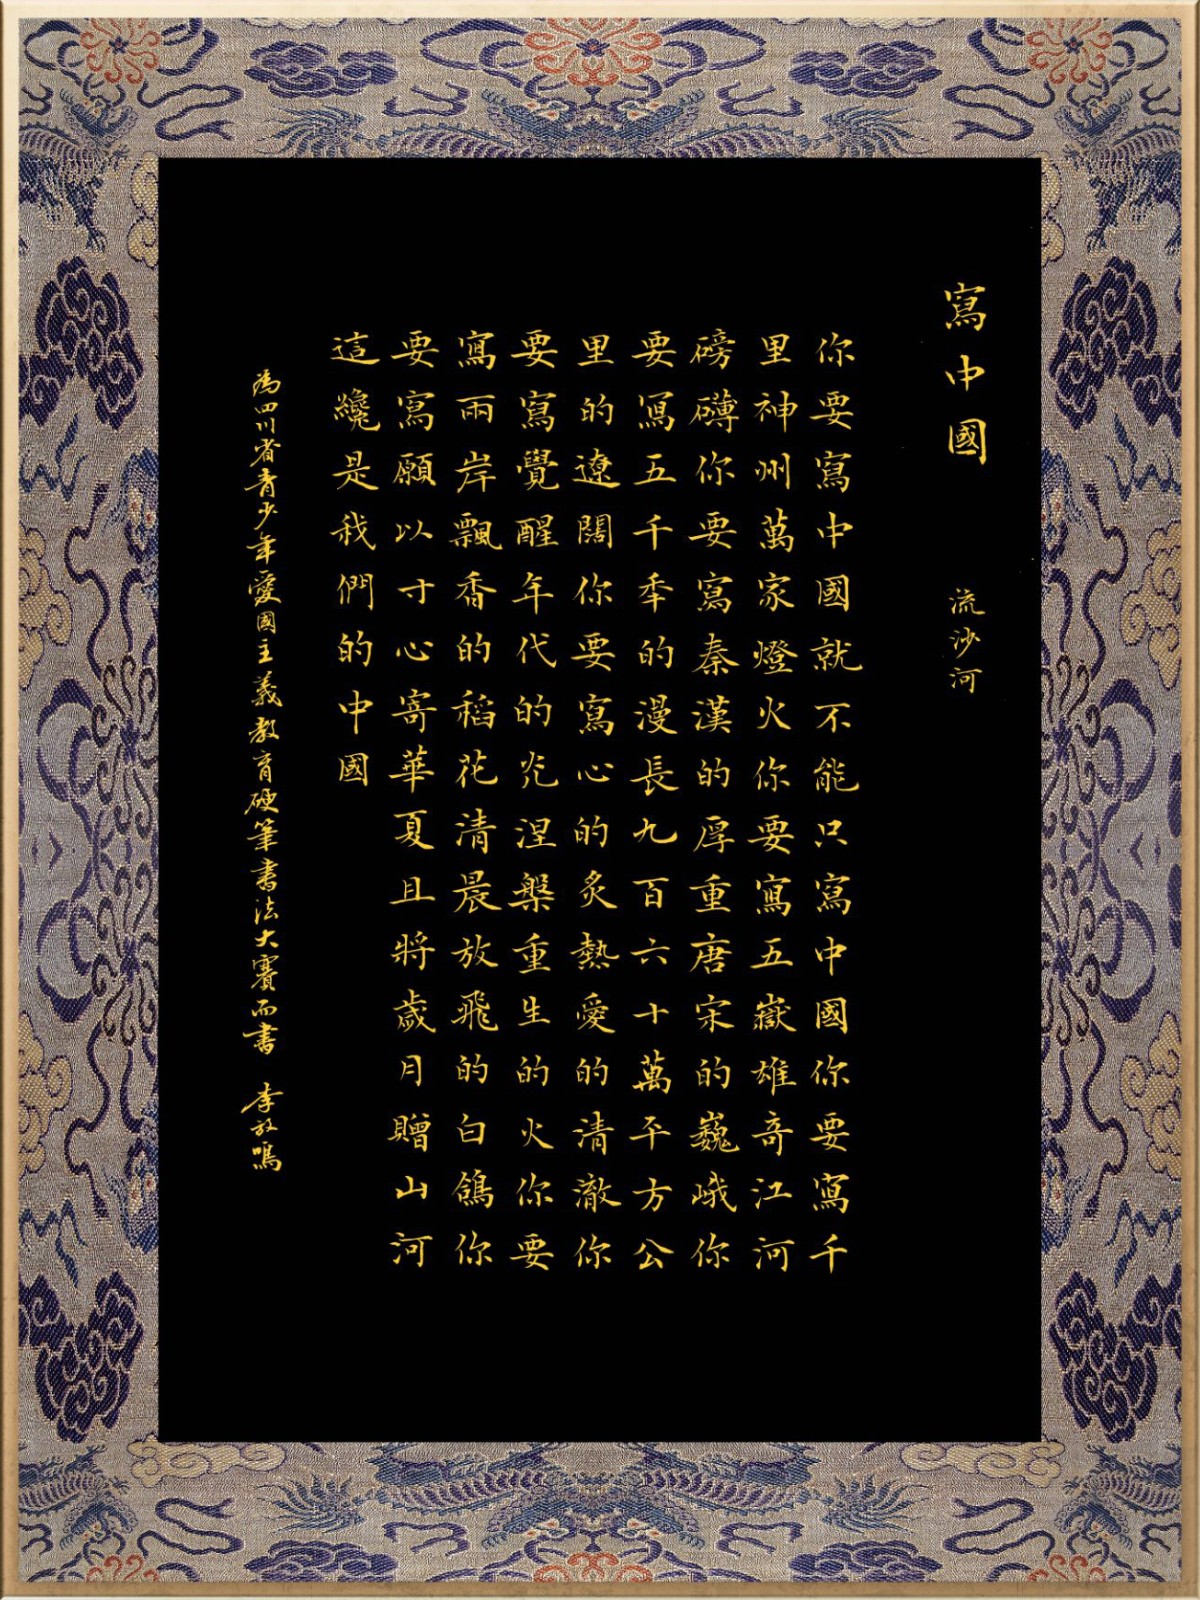 寫中國 流沙河
你要寫中國就不能只寫中國你要寫千
里神州萬家燈火你要寫五嶽雄奇江河
磅礴你要寫秦漢的厚重唐宋的巍峨你
要寫五千年的漫長九百六十萬平方公
里的遼闊你要寫心的炙熱愛的清澈你
要寫覺醒年代的光涅槃重生的火你要
寫兩岸飄香的稻花清晨放飛的白鴿你
要寫願以寸心寄華夏且將歲月贈山河
這纔是我們的中國
為四川省青少年愛國主義教育硬筆書法大賽而書 李放鳴